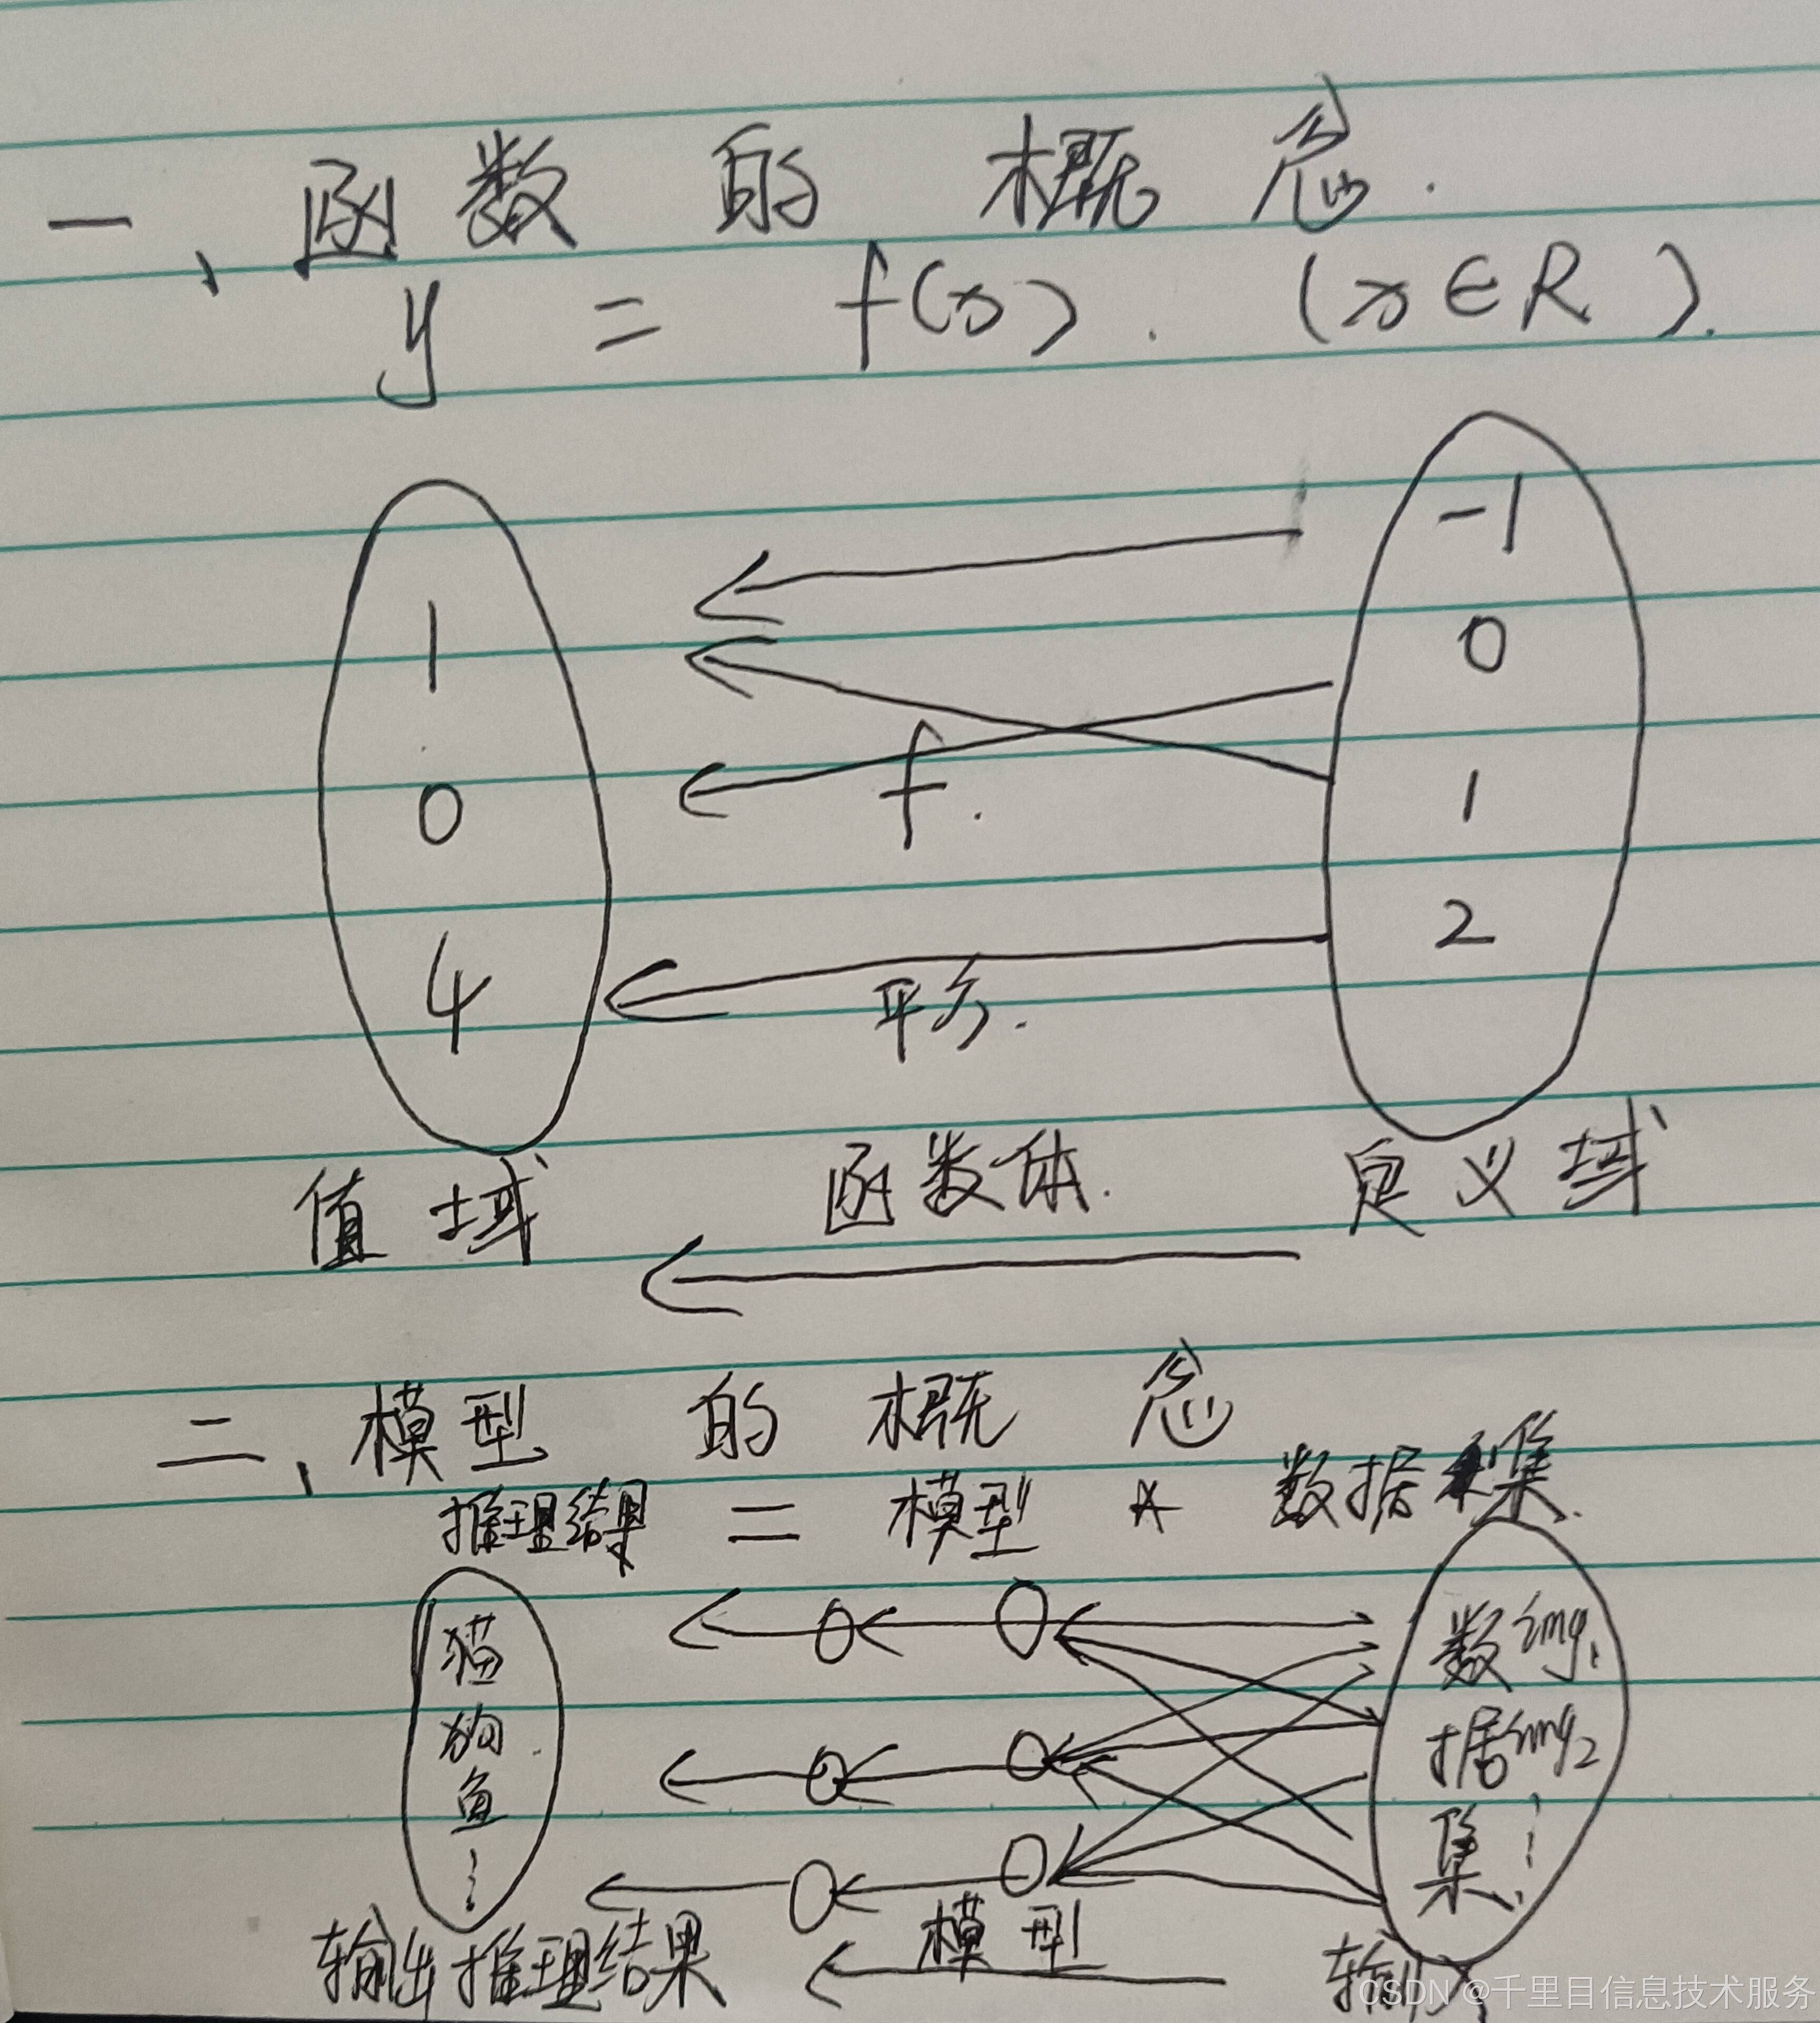 一、函数的概念.
y = f(x). (x∈R).
-1
1
0
0
f.
1
4
2
平方.
值域
函数体.
定义域
二、模型的概念
推理结果 = 模型 * 数据集.
猫
狗.
鱼
⋮
数 img1
据 img2
集 ⋮
输出推理结果
模型
输入
CSDN @千里目信息技术服务